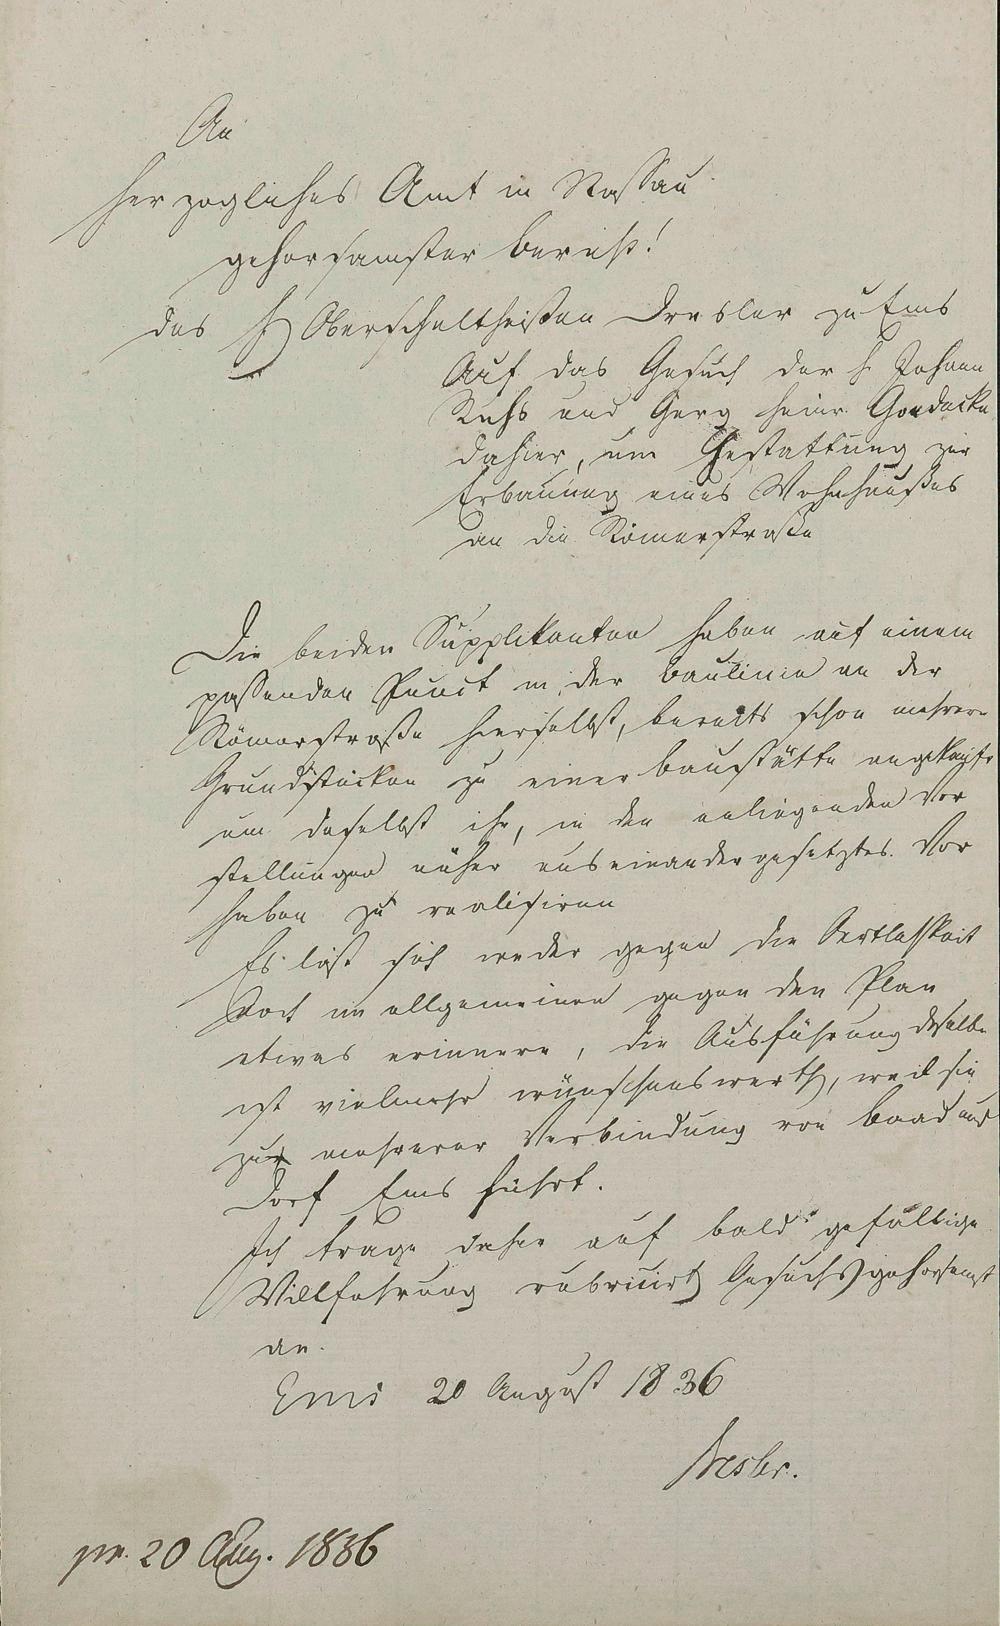 An
Herzogliches Amt in Nassau
gehorsamster Bericht!
des H Oberschultheißen Dresler zu Ems
Auf das Gesuch der H. Johann
und Gerg Heinr.
dahier, um Gestattung zur
Erbauung eines Wohnhaußes
an die Römerstraße
Die beiden Supplikanten haben auf einem
passenden Punct in der Baulinie an der
Römerstraße hierselbst, bereits schon mehrere
Grundstücken zu einer Baustätte angekauft
um daselbst ihr, in den anliegenden Vor
stellungen näher auseinandergesetztes Vor
haben zu realisiren
Es läst sich weder gegen die Oertlichkeit
noch im allgemeinen gegen den Plan
etwas erinnern, die Ausführung deselben
ist vielmehr wünschenswerth, weil sie
zur mehrerer Verbindung von Baad und
Dorf Ems führt.
Ich trage daher auf bald gefällige
Willfahrung rubricirt Gesuchs gehorsamst
an.
Ems 20 August 1836
Dresler.
pr. 20 Aug. 1836